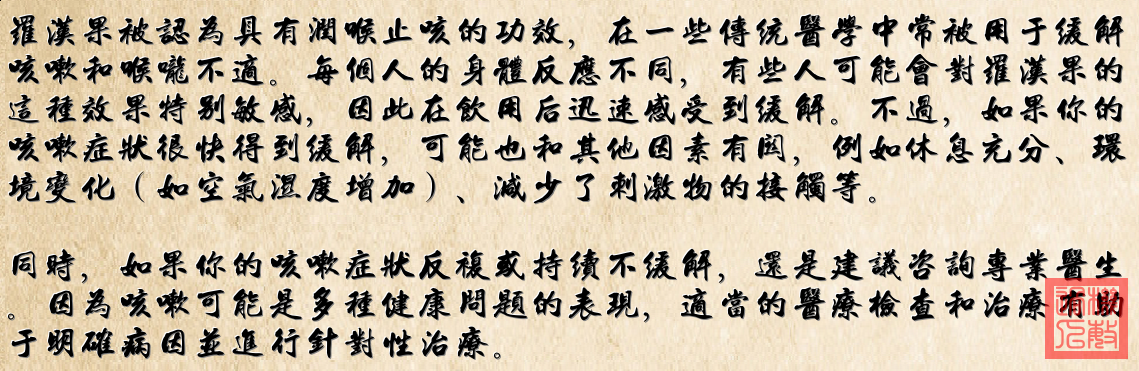 羅漢果被認為具有潤喉止咳的功效，在一些傳统醫學中常被用于缓解
咳嗽和喉嚨不適。每個人的身體反應不同，有些人可能會對羅漢果的
這種效果特别敏感，因此在飲用后迅速感受到缓解。不過，如果你的
咳嗽症狀很快得到缓解，可能也和其他因素有関，例如休息充分、環
境變化（如空氣濕度增加）、減少了刺激物的接觸等。
同時，如果你的咳嗽症狀反複或持续不缓解，還是建議咨詢專業醫生
。因為咳嗽可能是多種健康問題的表現，適當的醫療檢查和治療有助
于明確病因並進行針對性治療。